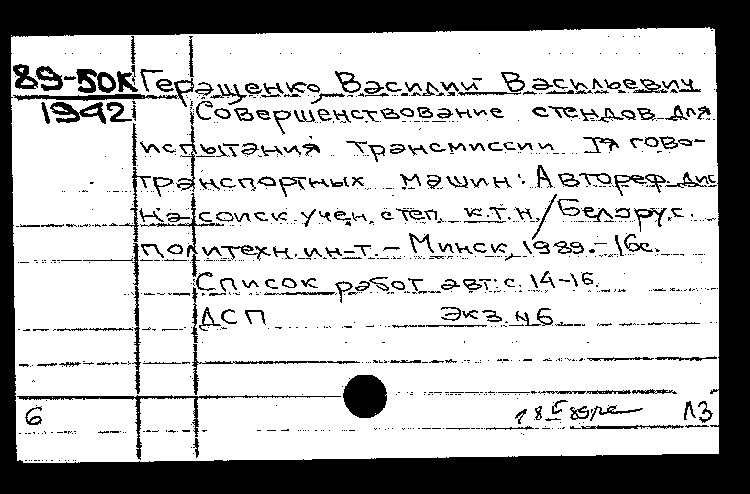 89-50К Геращенко, Василий Васильевич
1942 Совершенствование стендов для
испытания трансмиссии тягово-
транспортных машин: Автореф. дис.
на соиск. учен. степ. к.т.н. / Белорус.
политехн. ин-т. - Минск, 1989. - 16с.
Список работ авт: с. 14-16.
ДСП Экз. N6.
6 18 V 89 ЛЗ